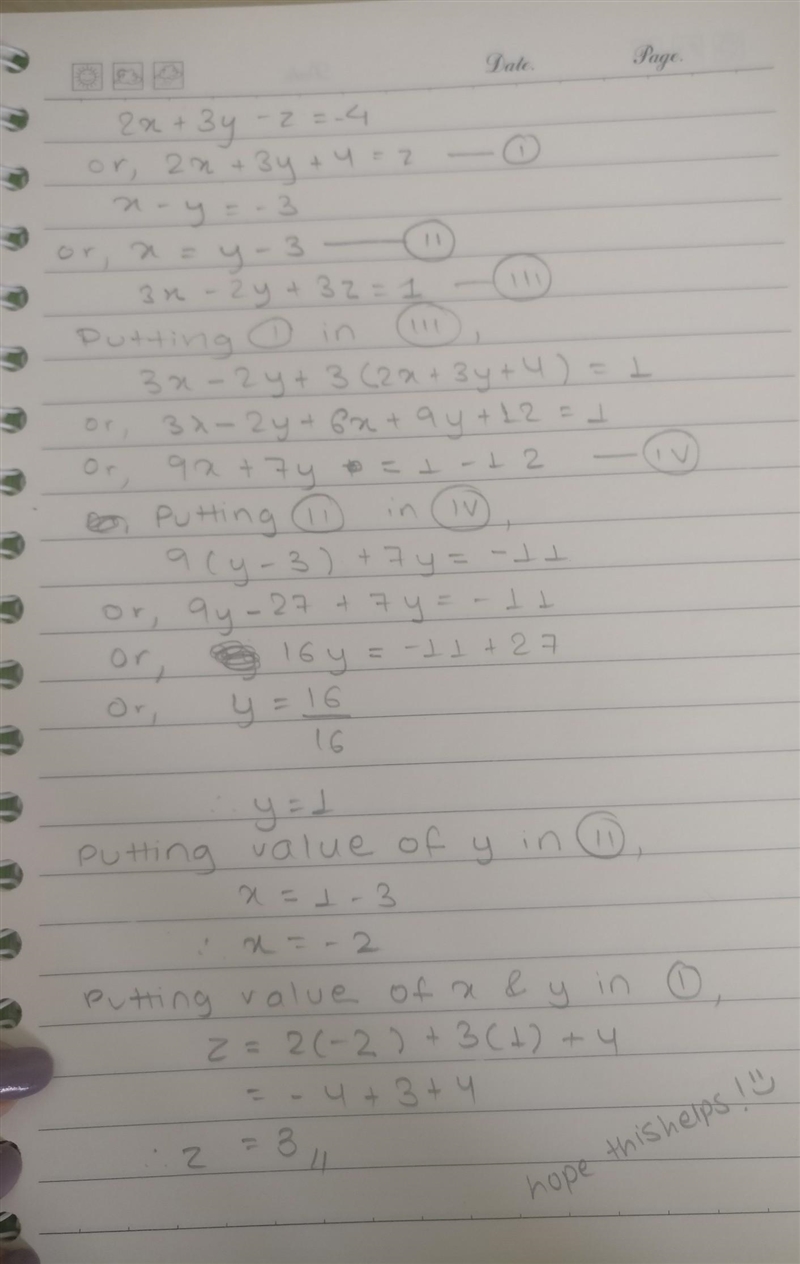 Date. Page.
2x + 3y - z = -4
or, 2x + 3y + 4 = z — (I)
x - y = -3
or, x = y - 3 — (II)
3x - 2y + 3z = 1 — (III)
Putting (I) in (III),
3x - 2y + 3(2x + 3y + 4) = 1
or, 3x - 2y + 6x + 9y + 12 = 1
Or, 9x + 7y = 1 - 12 — (IV)
Putting (II) in (IV),
9(y - 3) + 7y = -11
or, 9y - 27 + 7y = -11
Or, 16y = -11 + 27
Or, y = 16/16
∴ y = 1
Putting value of y in (II),
x = 1 - 3
∴ x = -2
Putting value of x & y in (I),
z = 2(-2) + 3(1) + 4
= -4 + 3 + 4
∴ z = 3 //
hope this helps! :)